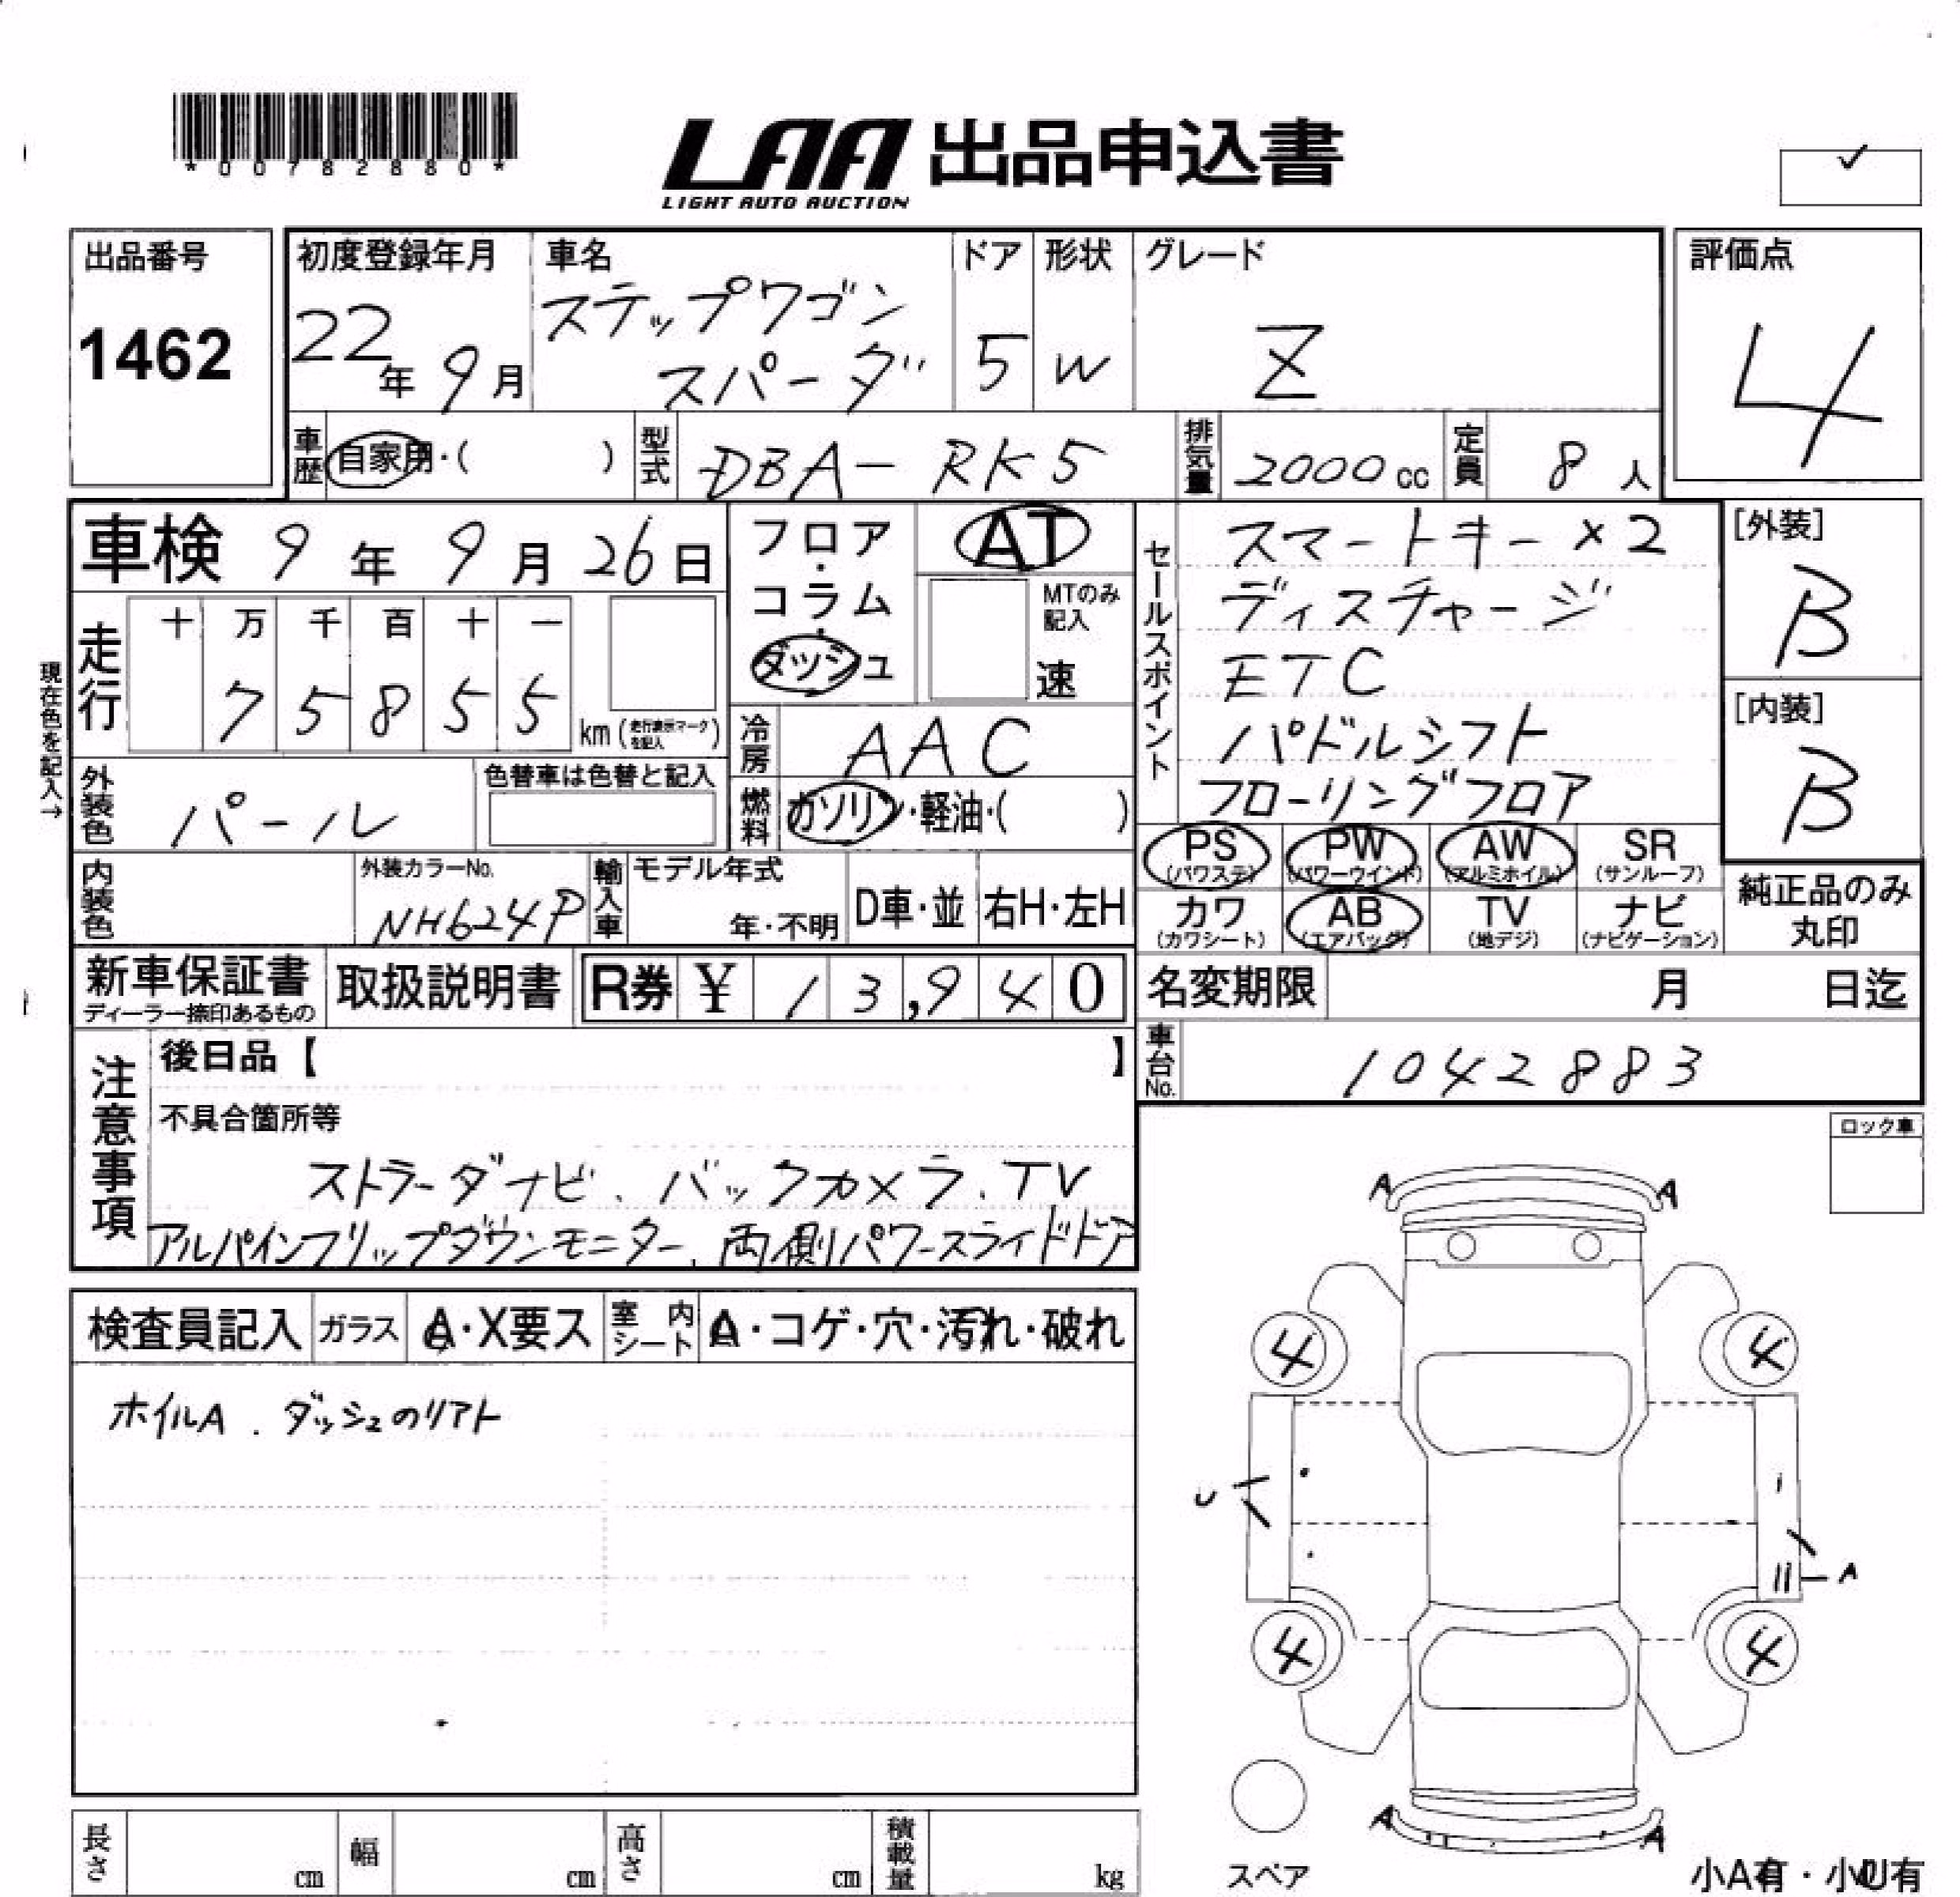 *00782880*
LAA 出品申込書
LIGHT AUTO AUCTION
出品番号
1462
初度登録年月
22年 9月
車名
ステップワゴン
スパーダ
ドア
5
形状
W
グレード
Z
評価点
4
車歴
自家用・( )
型式
DBA-RK5
排気量
2000cc
定員
8人
車検 9年 9月 26日
走行
十 万 千 百 十 一
7 5 8 5 5
km(走行表示マークを記入)
現在色を記入→
外装色
パール
色替車は色替と記入
内装色
外装カラーNo.
NH624P
フロア・コラム・ダッシュ
AT
MTのみ記入
速
冷房
AAC
燃料
ガソリン・軽油・( )
輸入車
モデル年式
年・不明
D車・並
右H・左H
セールスポイント
スマートキー×2
ディスチャージ
ETC
パドルシフト
フローリングフロア
[外装]
B
[内装]
B
PS
(パワステ)
PW
(パワーウインド)
AW
(アルミホイル)
SR
(サンルーフ)
カワ
(カワシート)
AB
(エアバッグ)
TV
(地デジ)
ナビ
(ナビゲーション)
純正品のみ
丸印
新車保証書
ディーラー捺印あるもの
取扱説明書
R券 ¥ 13,940
名変期限
月 日迄
車台No.
1042883
注意事項
後日品【 】
不具合箇所等
ストラーダナビ、バックカメラ、TV
アルパインフリップダウンモニター、両側パワースライドドア
ロック車
検査員記入
ガラス
A・X要ス
室内シート
A・コゲ・穴・汚れ・破れ
ホイルA . ダッシュのリアト
A A
4 4
U
A
4 4
A A
スペア
小A有・小U有
長さ
cm
幅
cm
高さ
cm
積載量
kg